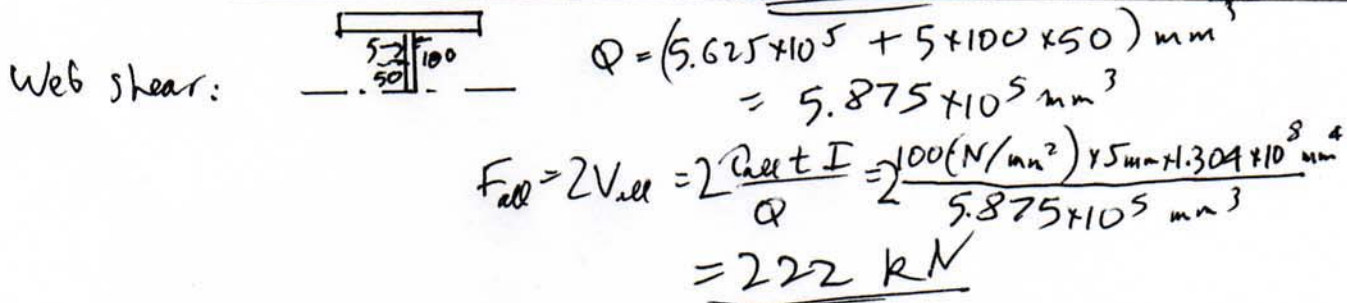 Web shear:
5 100
50
Q = (5.625×10⁵ + 5×100×50) mm³
= 5.875×10⁵ mm³
F_all = 2V_all = 2 τ_all t I / Q = 2 100(N/mm²)×5mm×1.304×10⁸ mm⁴ / 5.875×10⁵ mm³
= 222 kN